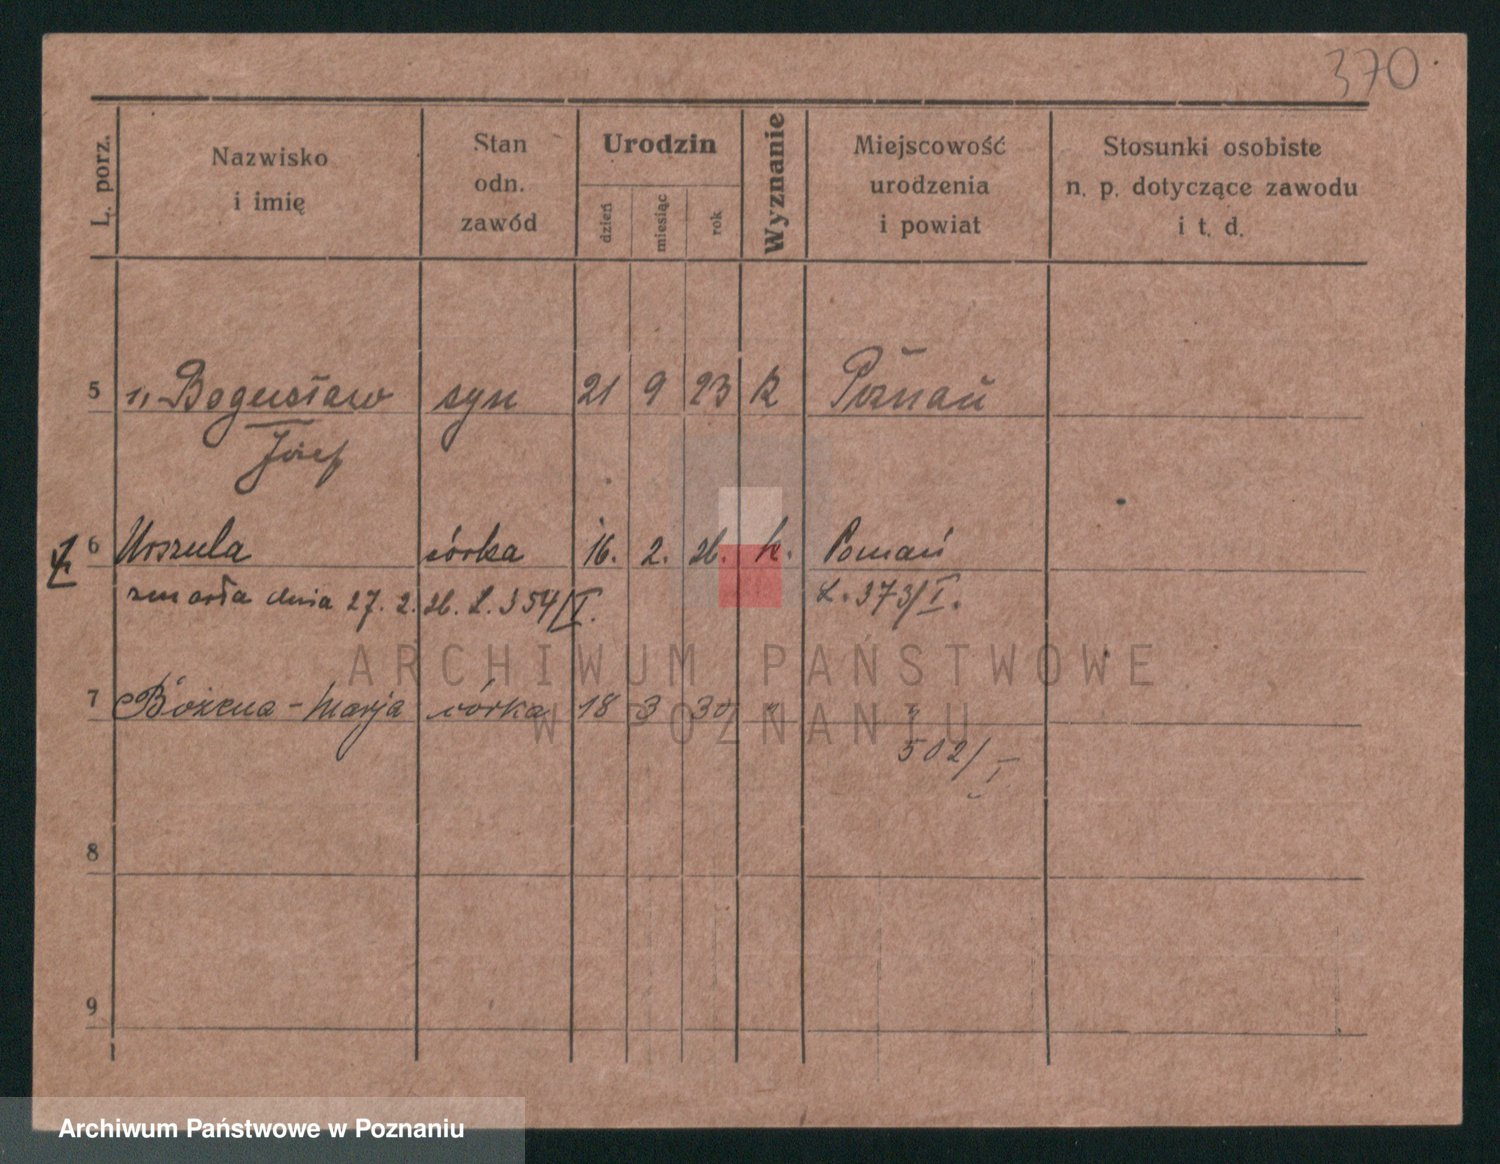 370.
L. porz.
Nazwisko
i imię
Stan
odn.
zawód
Urodzin
dzień
miesiąc
rok
Wyznanie
Miejscowość
urodzenia
i powiat
Stosunki osobiste
n. p. dotyczące zawodu
i t. d.
5 1, Bogusław syn 21 9 23 k Poznań
Józef
6 Urszula córka 16. 2. 26. k. Poznań
zmarła dnia 27. 2. 26. L. 354/I. L. 373/I.
ARCHIWUM PAŃSTWOWE
7 Bożena-Marja córka 18 3 30 " "
W POZNANIU
502/I
8
9
Archiwum Państwowe w Poznaniu